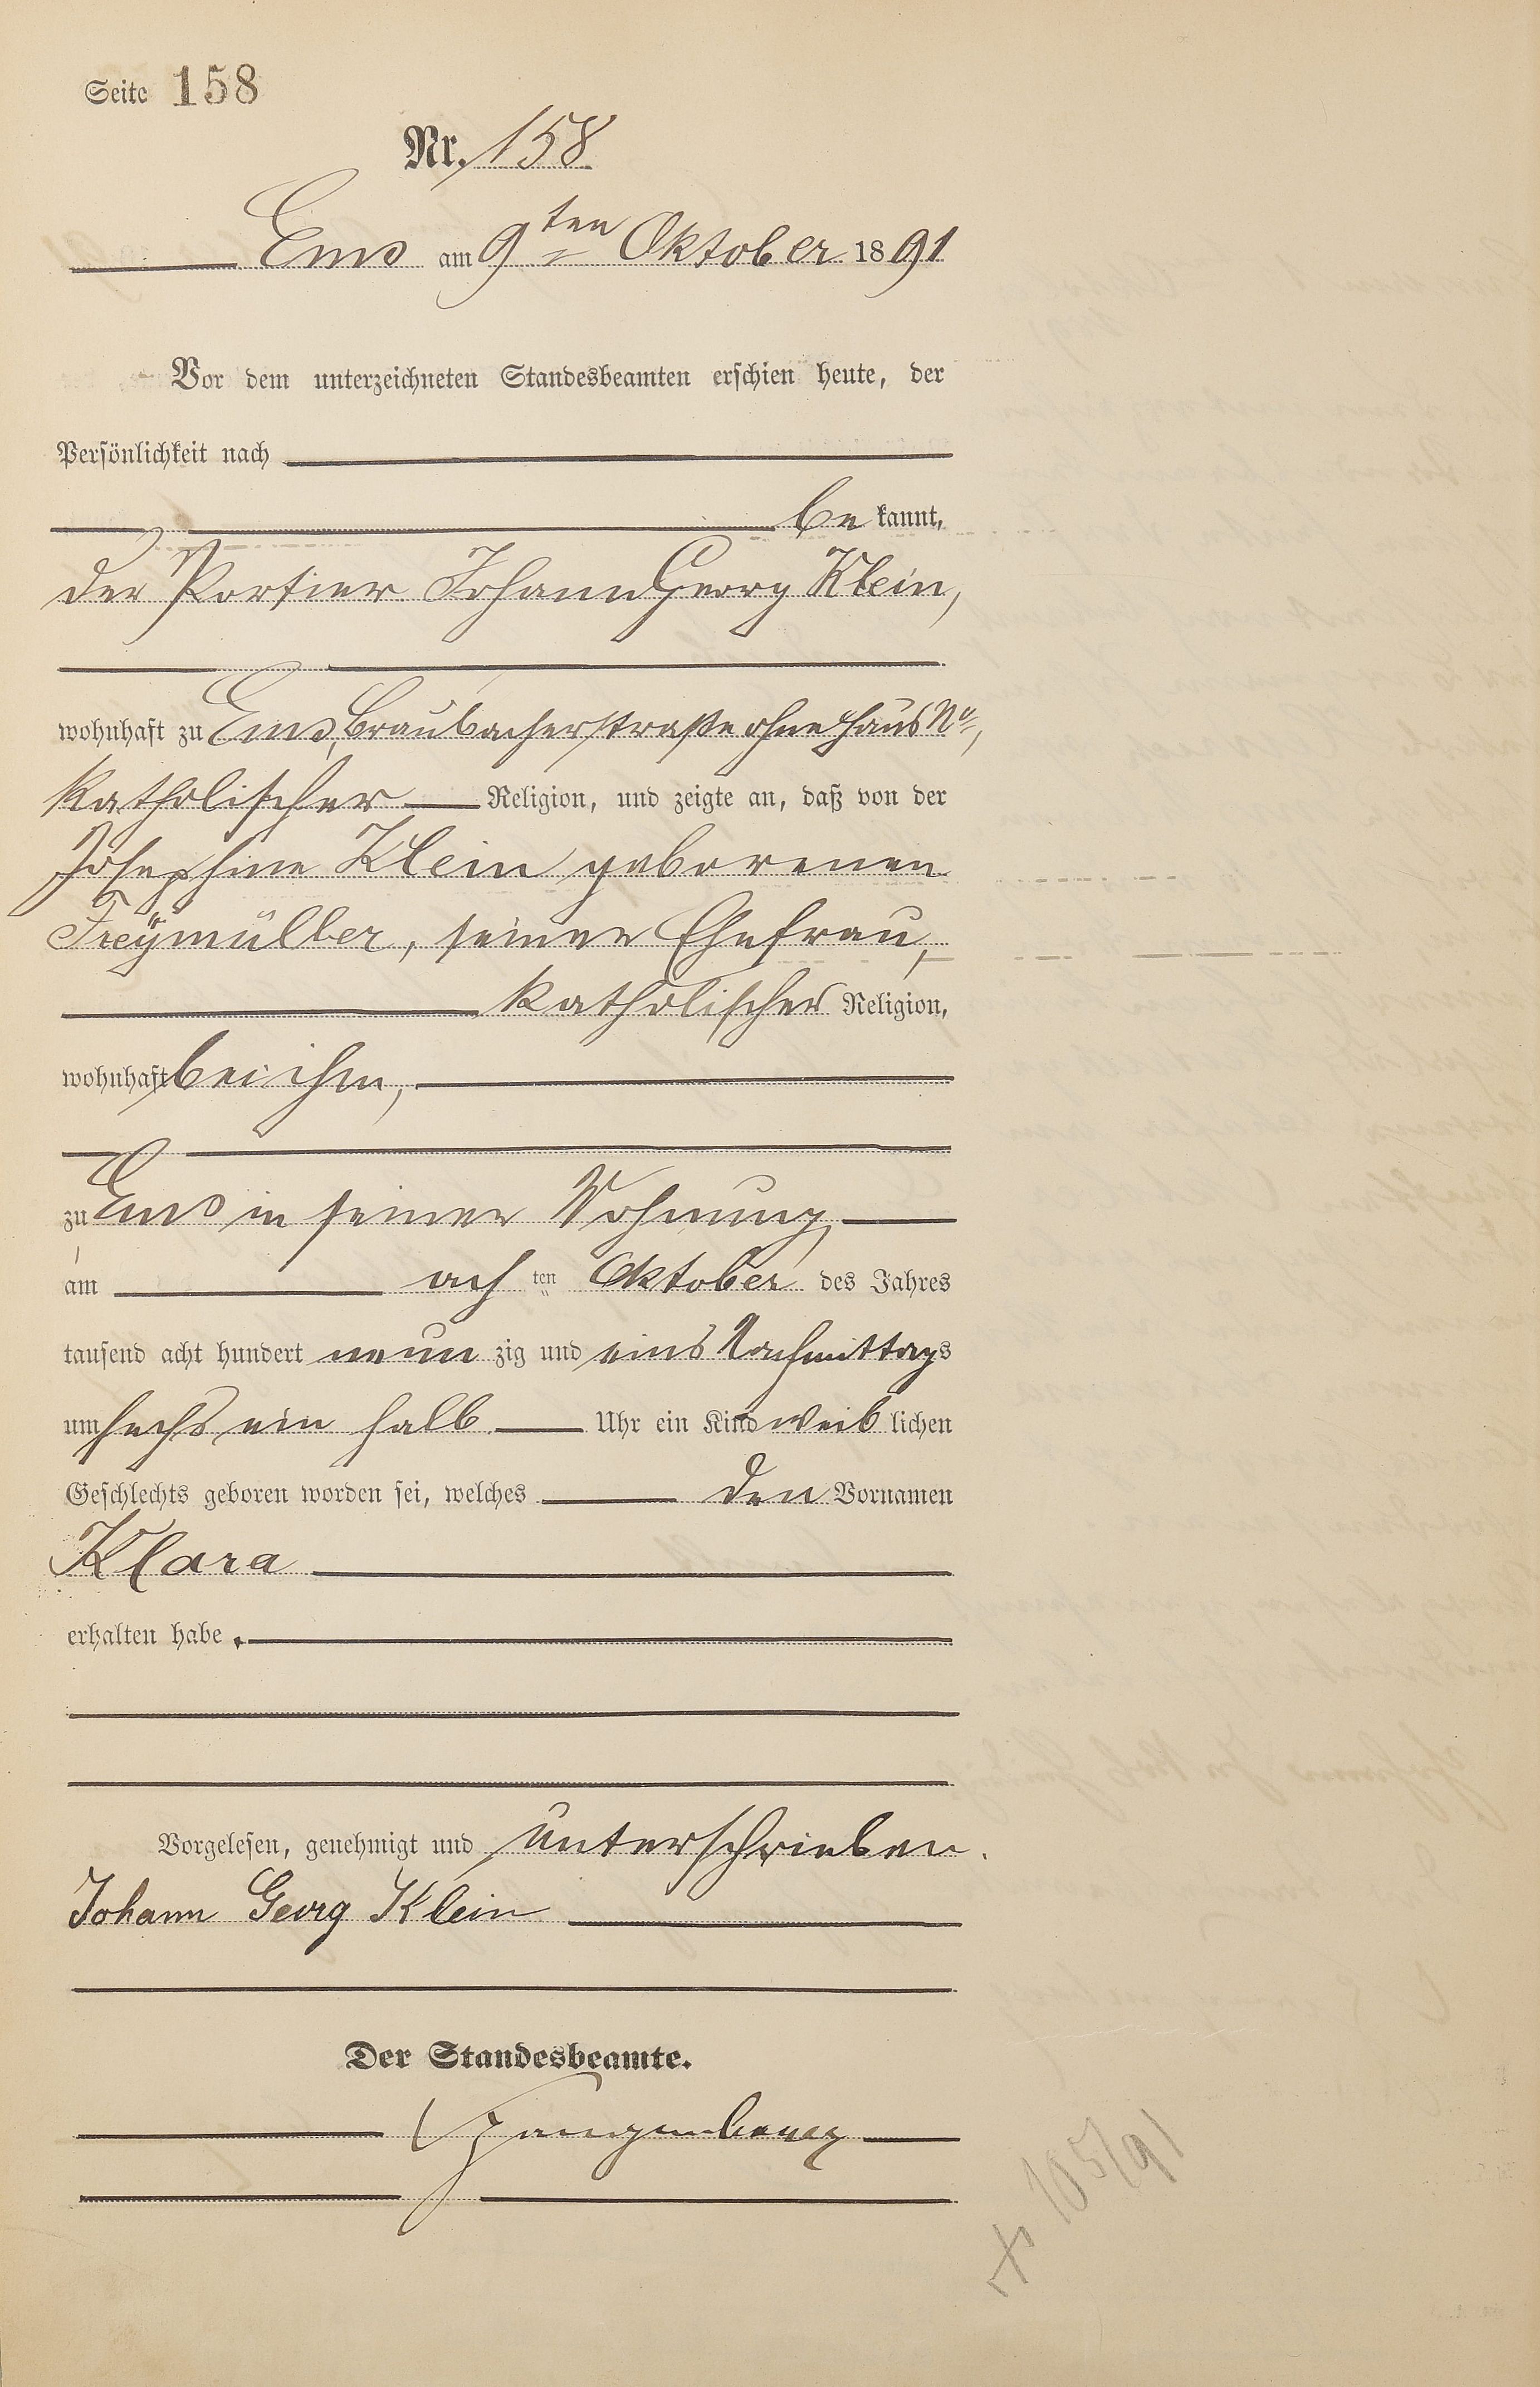 Seite 158
Nr. 158
Ems am 9ten Oktober 1891
Vor dem unterzeichneten Standesbeamten erschien heute, der
Persönlichkeit nach
bekannt,
der Portier Johann Georg Klein,
wohnhaft zu Ems, Braubacherstraße ohne Haus No,
katholischer Religion, und zeigte an, daß von der
Josephine Klein geborenen
Freÿmüller, seiner Ehefrau,
katholischer Religion,
wohnhaft bei ihm,
zu Ems in seiner Wohnung
am achten Oktober des Jahres
tausend acht hundert neunzig und eins Nachmittags
um sechs ein halb Uhr ein Kind weiblichen
Geschlechts geboren worden sei, welches den Vornamen
Klara
erhalten habe.
Vorgelesen, genehmigt und unterschrieben.
Johann Georg Klein
Der Standesbeamte.
+ 105/91